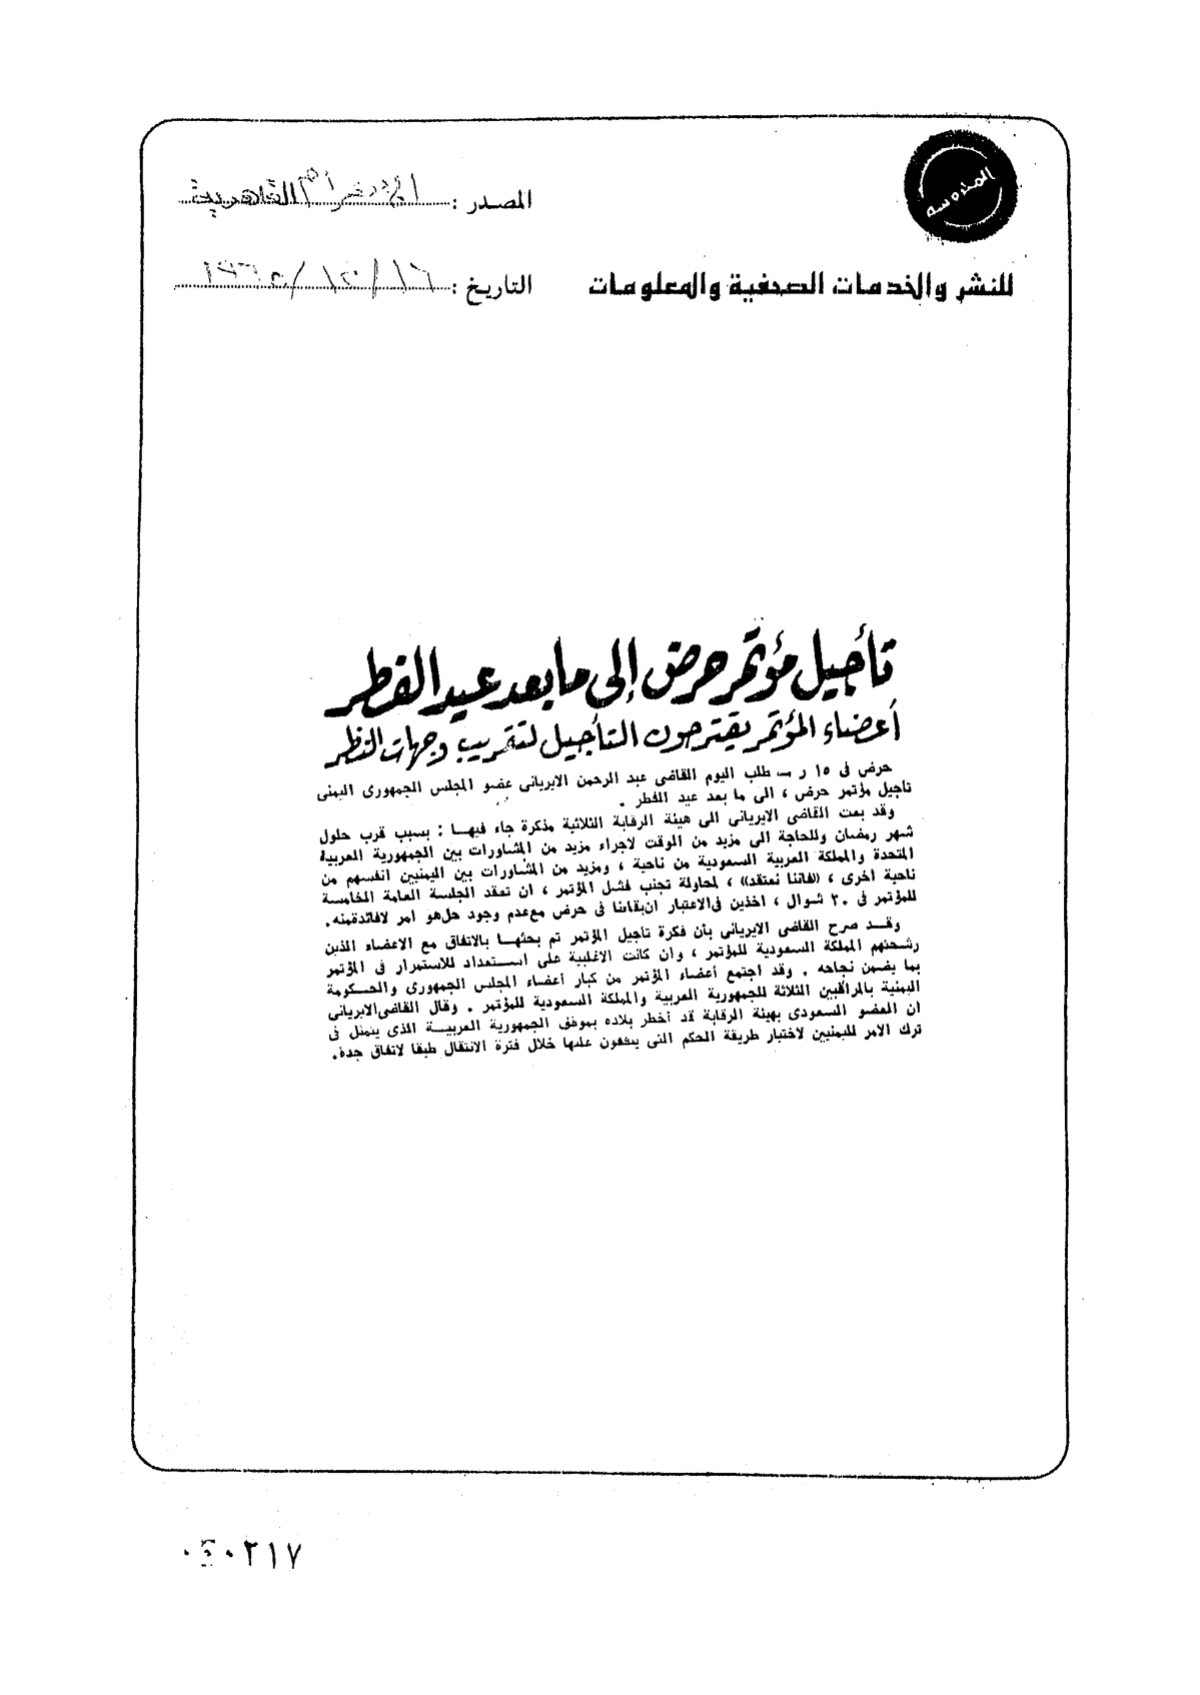 المحروسة
المصدر : الأهرام القاهرية
للنشر والخدمات الصحفية والمعلومات
التاريخ : ١٦/١٢/١٩٦٥
تأجيل مؤتمر حرض إلى ما بعد عيد الفطر
أعضاء المؤتمر يقترحون التأجيل لتقريب وجهات النظر
حرض فى ١٥ ر — طلب اليوم القاضى عبد الرحمن الايريانى عضو المجلس الجمهورى اليمنى
تاجيل مؤتمر حرض ، الى ما بعد عيد الفطر .
وقد بعث القاضى الايريانى الى هيئة الرقابة الثلاثية مذكرة جاء فيها : بسبب قرب حلول
شهر رمضان وللحاجة الى مزيد من الوقت لاجراء مزيد من المشاورات بين الجمهورية العربية
المتحدة والمملكة العربية السعودية من ناحية ، ومزيد من المشاورات بين اليمنيين انفسهم من
ناحية اخرى ، «فاننا نعتقد» ، لمحاولة تجنب فشل المؤتمر ، ان تعقد الجلسة العامة الخامسة
للمؤتمر فى ٢٠ شوال ، اخذين فى الاعتبار ان بقاءنا فى حرض مع عدم وجود حل هو امر لا فائدة منه .
وقد صرح القاضى الايريانى بأن فكرة تاجيل المؤتمر تم بحثها بالاتفاق مع الاعضاء الذين
رشحتهم المملكة السعودية للمؤتمر ، وان كانت الاغلبية على استعداد للاستمرار فى المؤتمر
بما يضمن نجاحه . وقد اجتمع أعضاء المؤتمر من كبار أعضاء المجلس الجمهورى والحكومة
اليمنية بالمراقبين الثلاثة للجمهورية العربية والمملكة السعودية للمؤتمر . وقال القاضى الايريانى
ان العضو السعودى بهيئة الرقابة قد أخطر بلاده بموقف الجمهورية العربية الذى يتمثل فى
ترك الامر لليمنيين لاختيار طريقة الحكم التى يتفقون عليها خلال فترة الانتقال طبقا لاتفاق جدة .
٠٤٠٢١٧